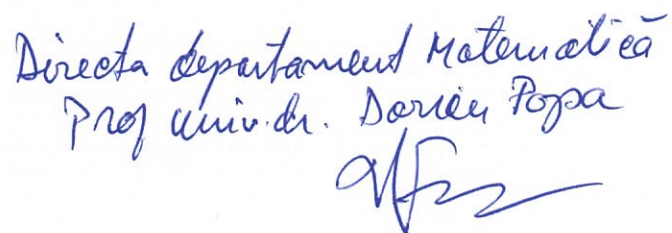 Director departament Matematică
Prof univ. dr. Dorian Popa